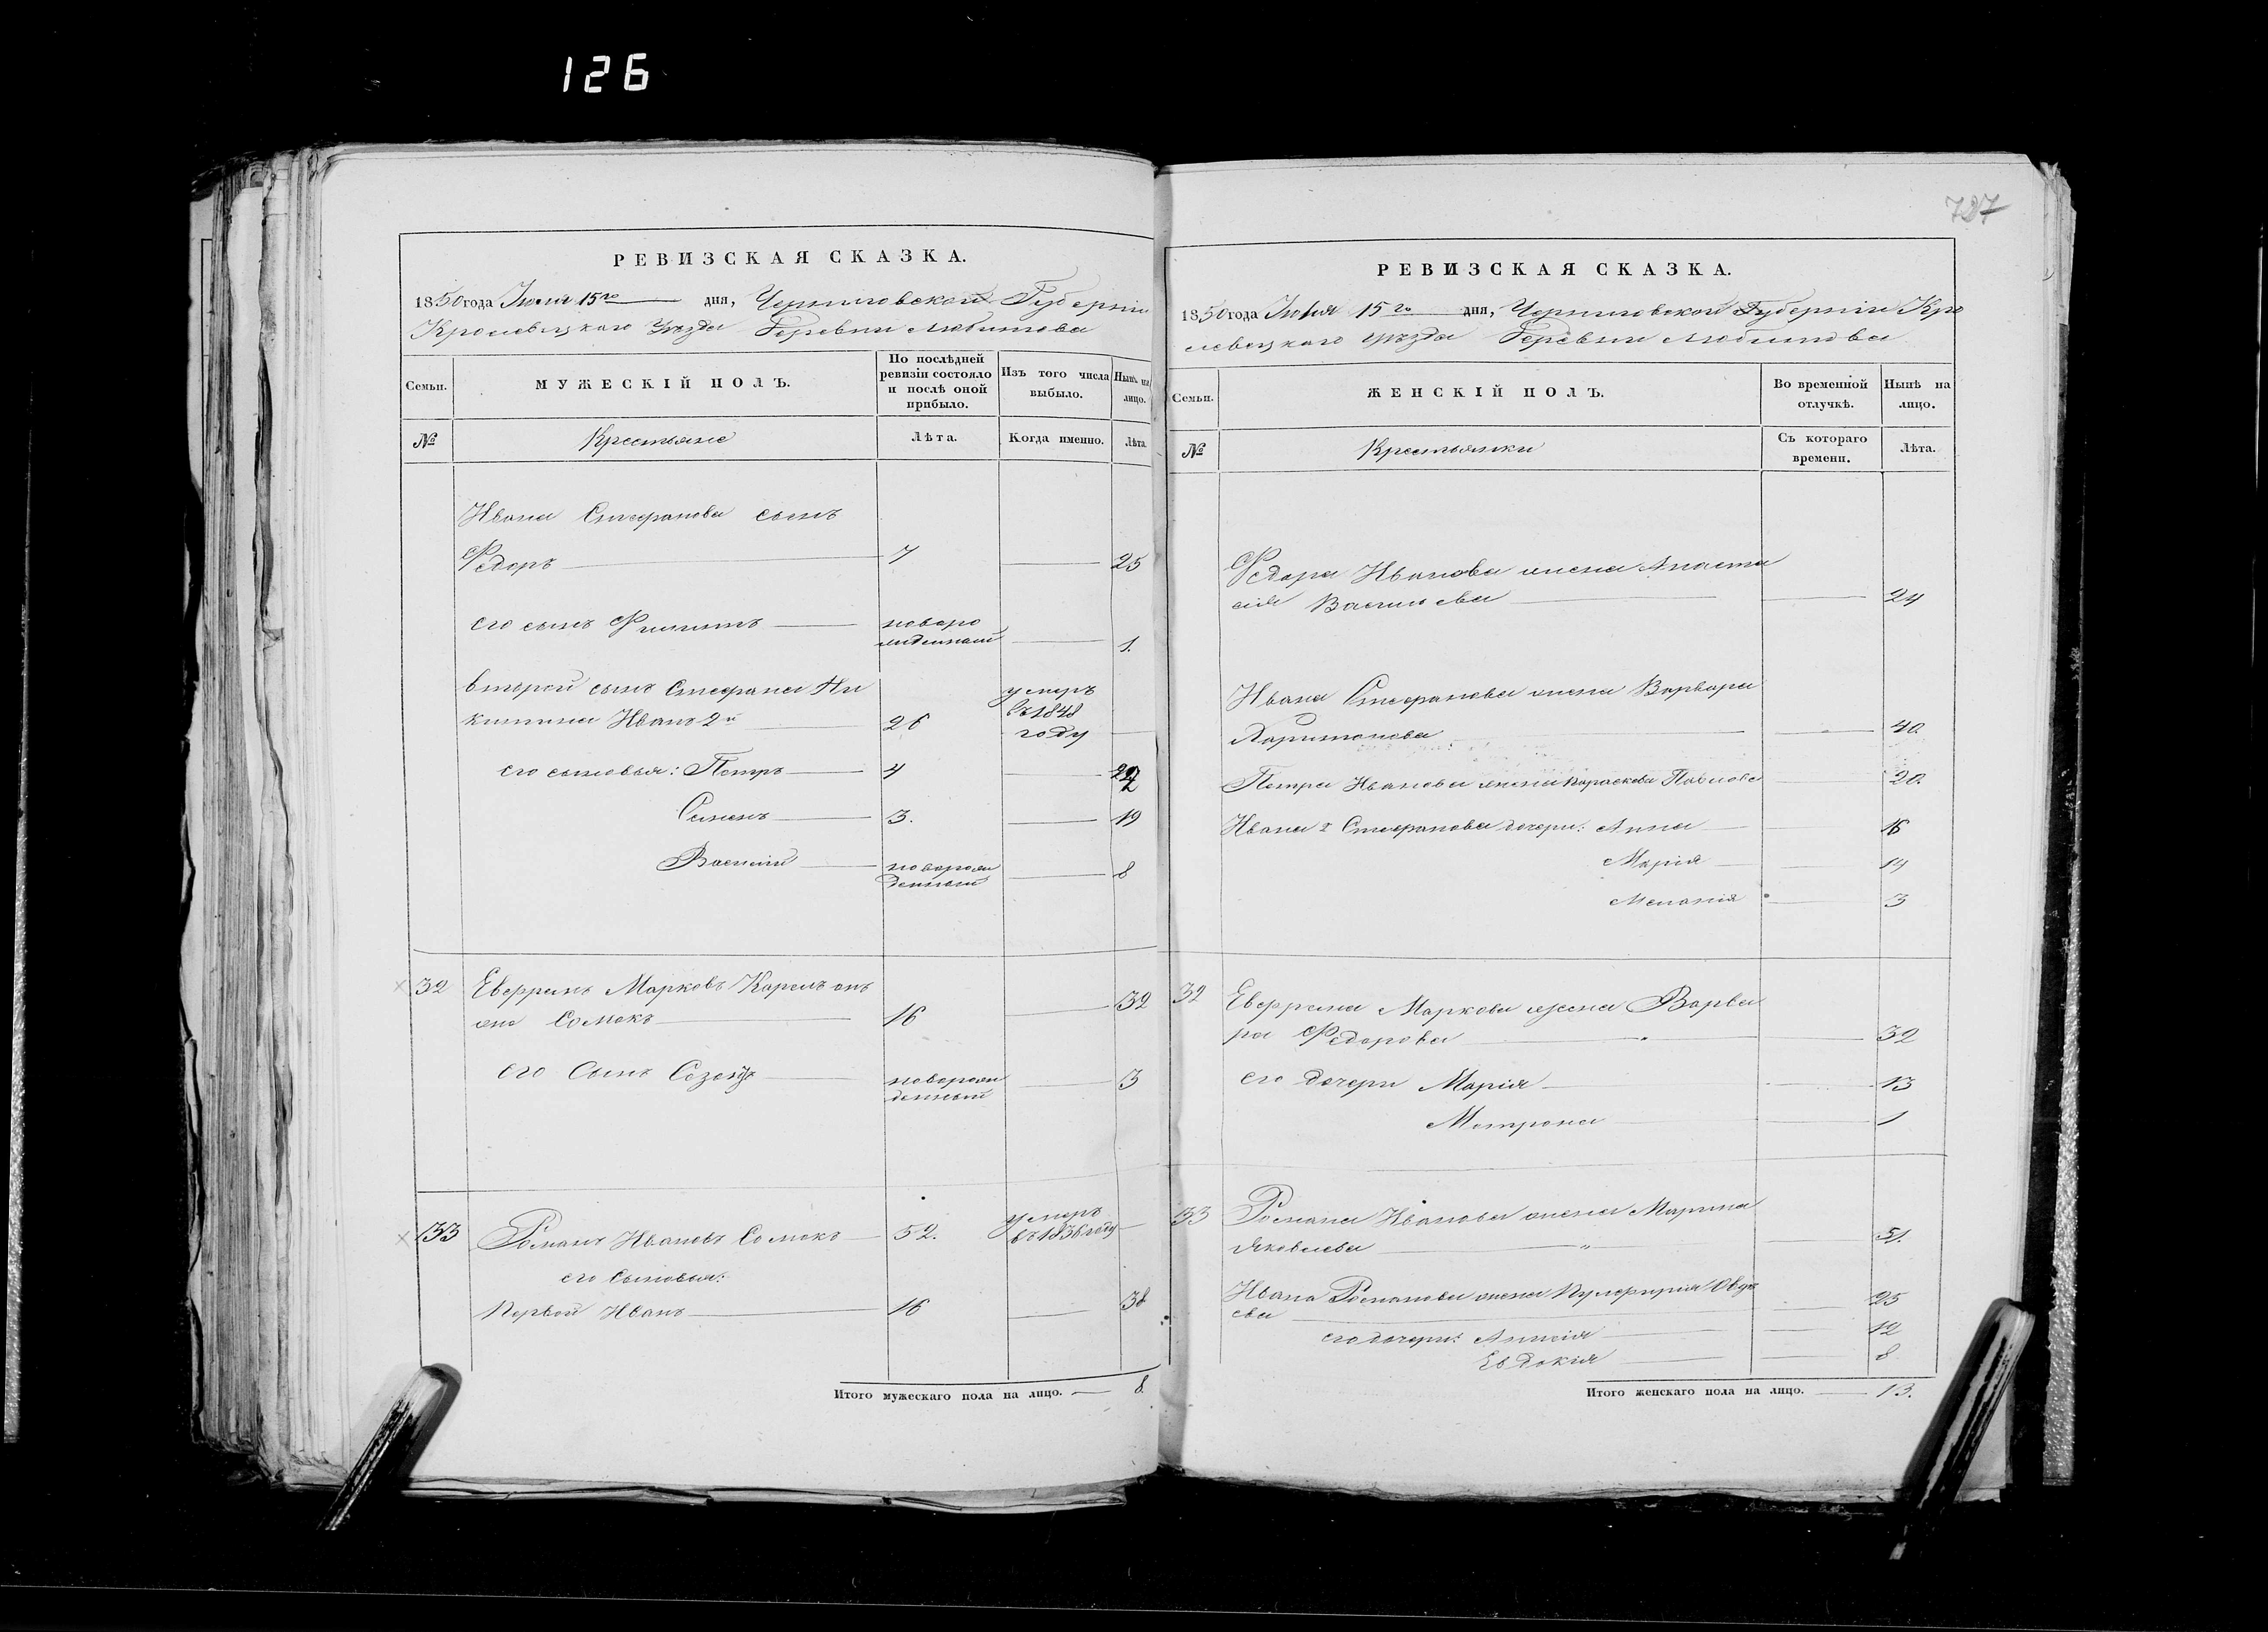 126
727
РЕВИЗСКАЯ СКАЗКА.
1850 года Июля 15го дня, Черниговской Губерніи
Кролевецкаго Уѣзда Деревни Любитова
Семьи. МУЖЕСКІЙ ПОЛЪ. По послѣдней ревизіи состояло и послѣ оной прибыло. Изъ того числа выбыло. Нынѣ на лицо.
№ Крестьяне Лѣта. Когда именно. Лѣта.
Ивана Стефанова сынъ
Федоръ 7 25
его сынъ Филипъ новорожденный 1.
второй сынъ Стефана Ни
китина Иванъ 2й 26 умеръ въ 1848 году
его сыновья: Петръ 4 22
Семенъ 3. 19
Василій новорожденный 8
32 Евфримъ Марковъ Карелъ онъ
же Сомокъ 16 32
его Сынъ Созонтъ новорожденный 3
33 Романъ Ивановъ Сомокъ 52. умеръ въ 1836 году
его Сыновья:
Первой Иванъ 16 38
Итого мужескаго пола на лицо. 8.
РЕВИЗСКАЯ СКАЗКА.
1850 года Июля 15го дня, Черниговской Губерніи Кро
левецкаго Уѣзда Деревни Любитова
Семьи. ЖЕНСКІЙ ПОЛЪ. Во временной отлучкѣ. Нынѣ на лицо.
№ Крестьянки Съ котораго времени. Лѣта.
Федора Иванова жена Анаста
сія Васильева 24
Ивана Стефанова жена Варвара
Харитонова 40
Петра Иванова жена Параскева Павлова 20.
Ивана 2 Стефанова дочери: Анна 16
Марія 14
Меланія 3
32 Евфрима Маркова жена Варва
ра Федорова 32
его дочери Марія 13
Матрона 1
33 Романа Иванова жена Марина
Яковлева 51.
Ивана Романова жена Пулхерія Овдѣ
ева 25
его дочери: Анисія 12
Евдокія 8
Итого женскаго пола на лицо. 13.